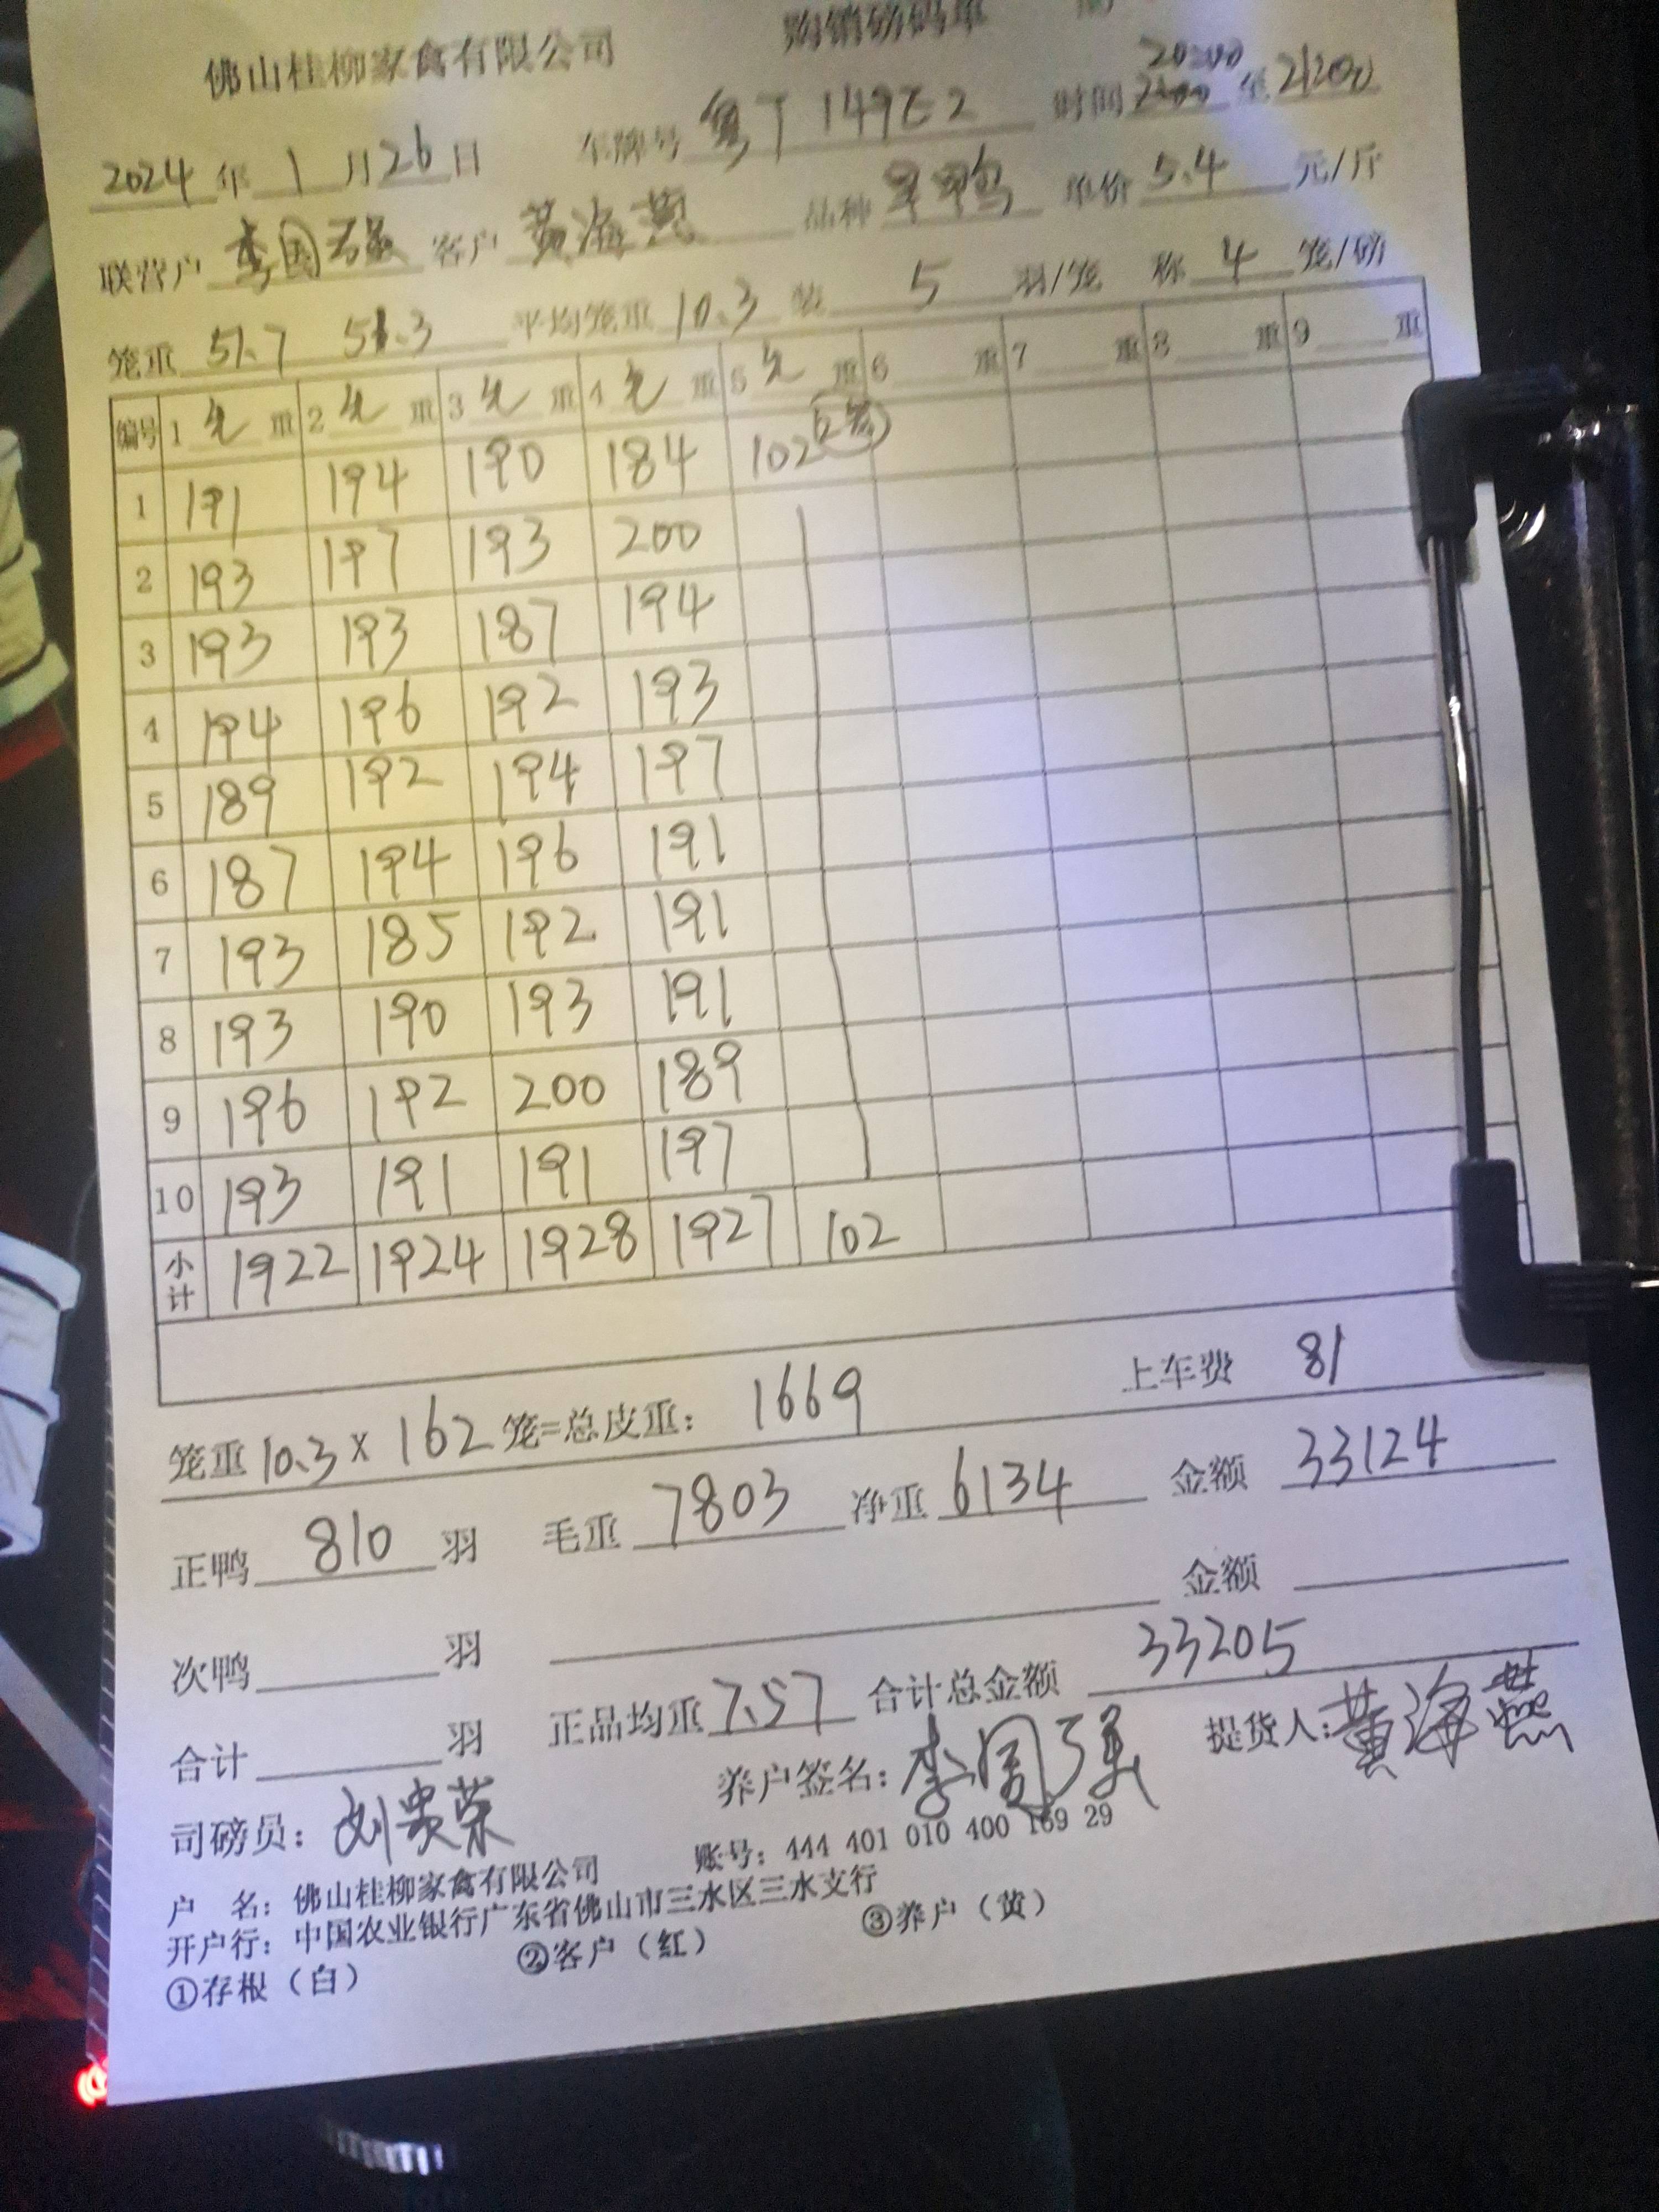 佛山桂柳家禽有限公司 购销磅码单
2024年1月26日 车牌号 粤T149E2 时间 20:00 至 21:00
联营户 李国强 客户 黄海燕 品种 单价 5.4 元/斤
笼重 51.7 51.3 平均笼重 10.3 装 5 羽/笼 称 4 笼/磅
编号 1 毛 重 2 毛 重 3 毛 重 4 毛 重 5 毛 重 6 重 7 重 8 重 9 重
1 191 194 190 184 102 (2笼)
2 193 197 193 200
3 193 193 187 194
4 194 196 192 193
5 189 192 194 197
6 187 194 196 191
7 193 185 192 191
8 193 190 193 191
9 196 192 200 189
10 193 191 191 197
小计 1922 1924 1928 1927 102
笼重 10.3 x 162 笼=总皮重： 1669 上车费 81
正鸭 810 羽 毛重 7803 净重 6134 金额 33124
次鸭 羽 金额
合计 羽 正品均重 7.57 合计总金额 33205
司磅员： 刘贵荣 养户签名：李国强 提货人：黄海燕
户 名：佛山桂柳家禽有限公司 账号：444 401 010 400 169 29
开户行：中国农业银行广东省佛山市三水区三水支行
①存根（白） ②客户（红） ③养户（黄）